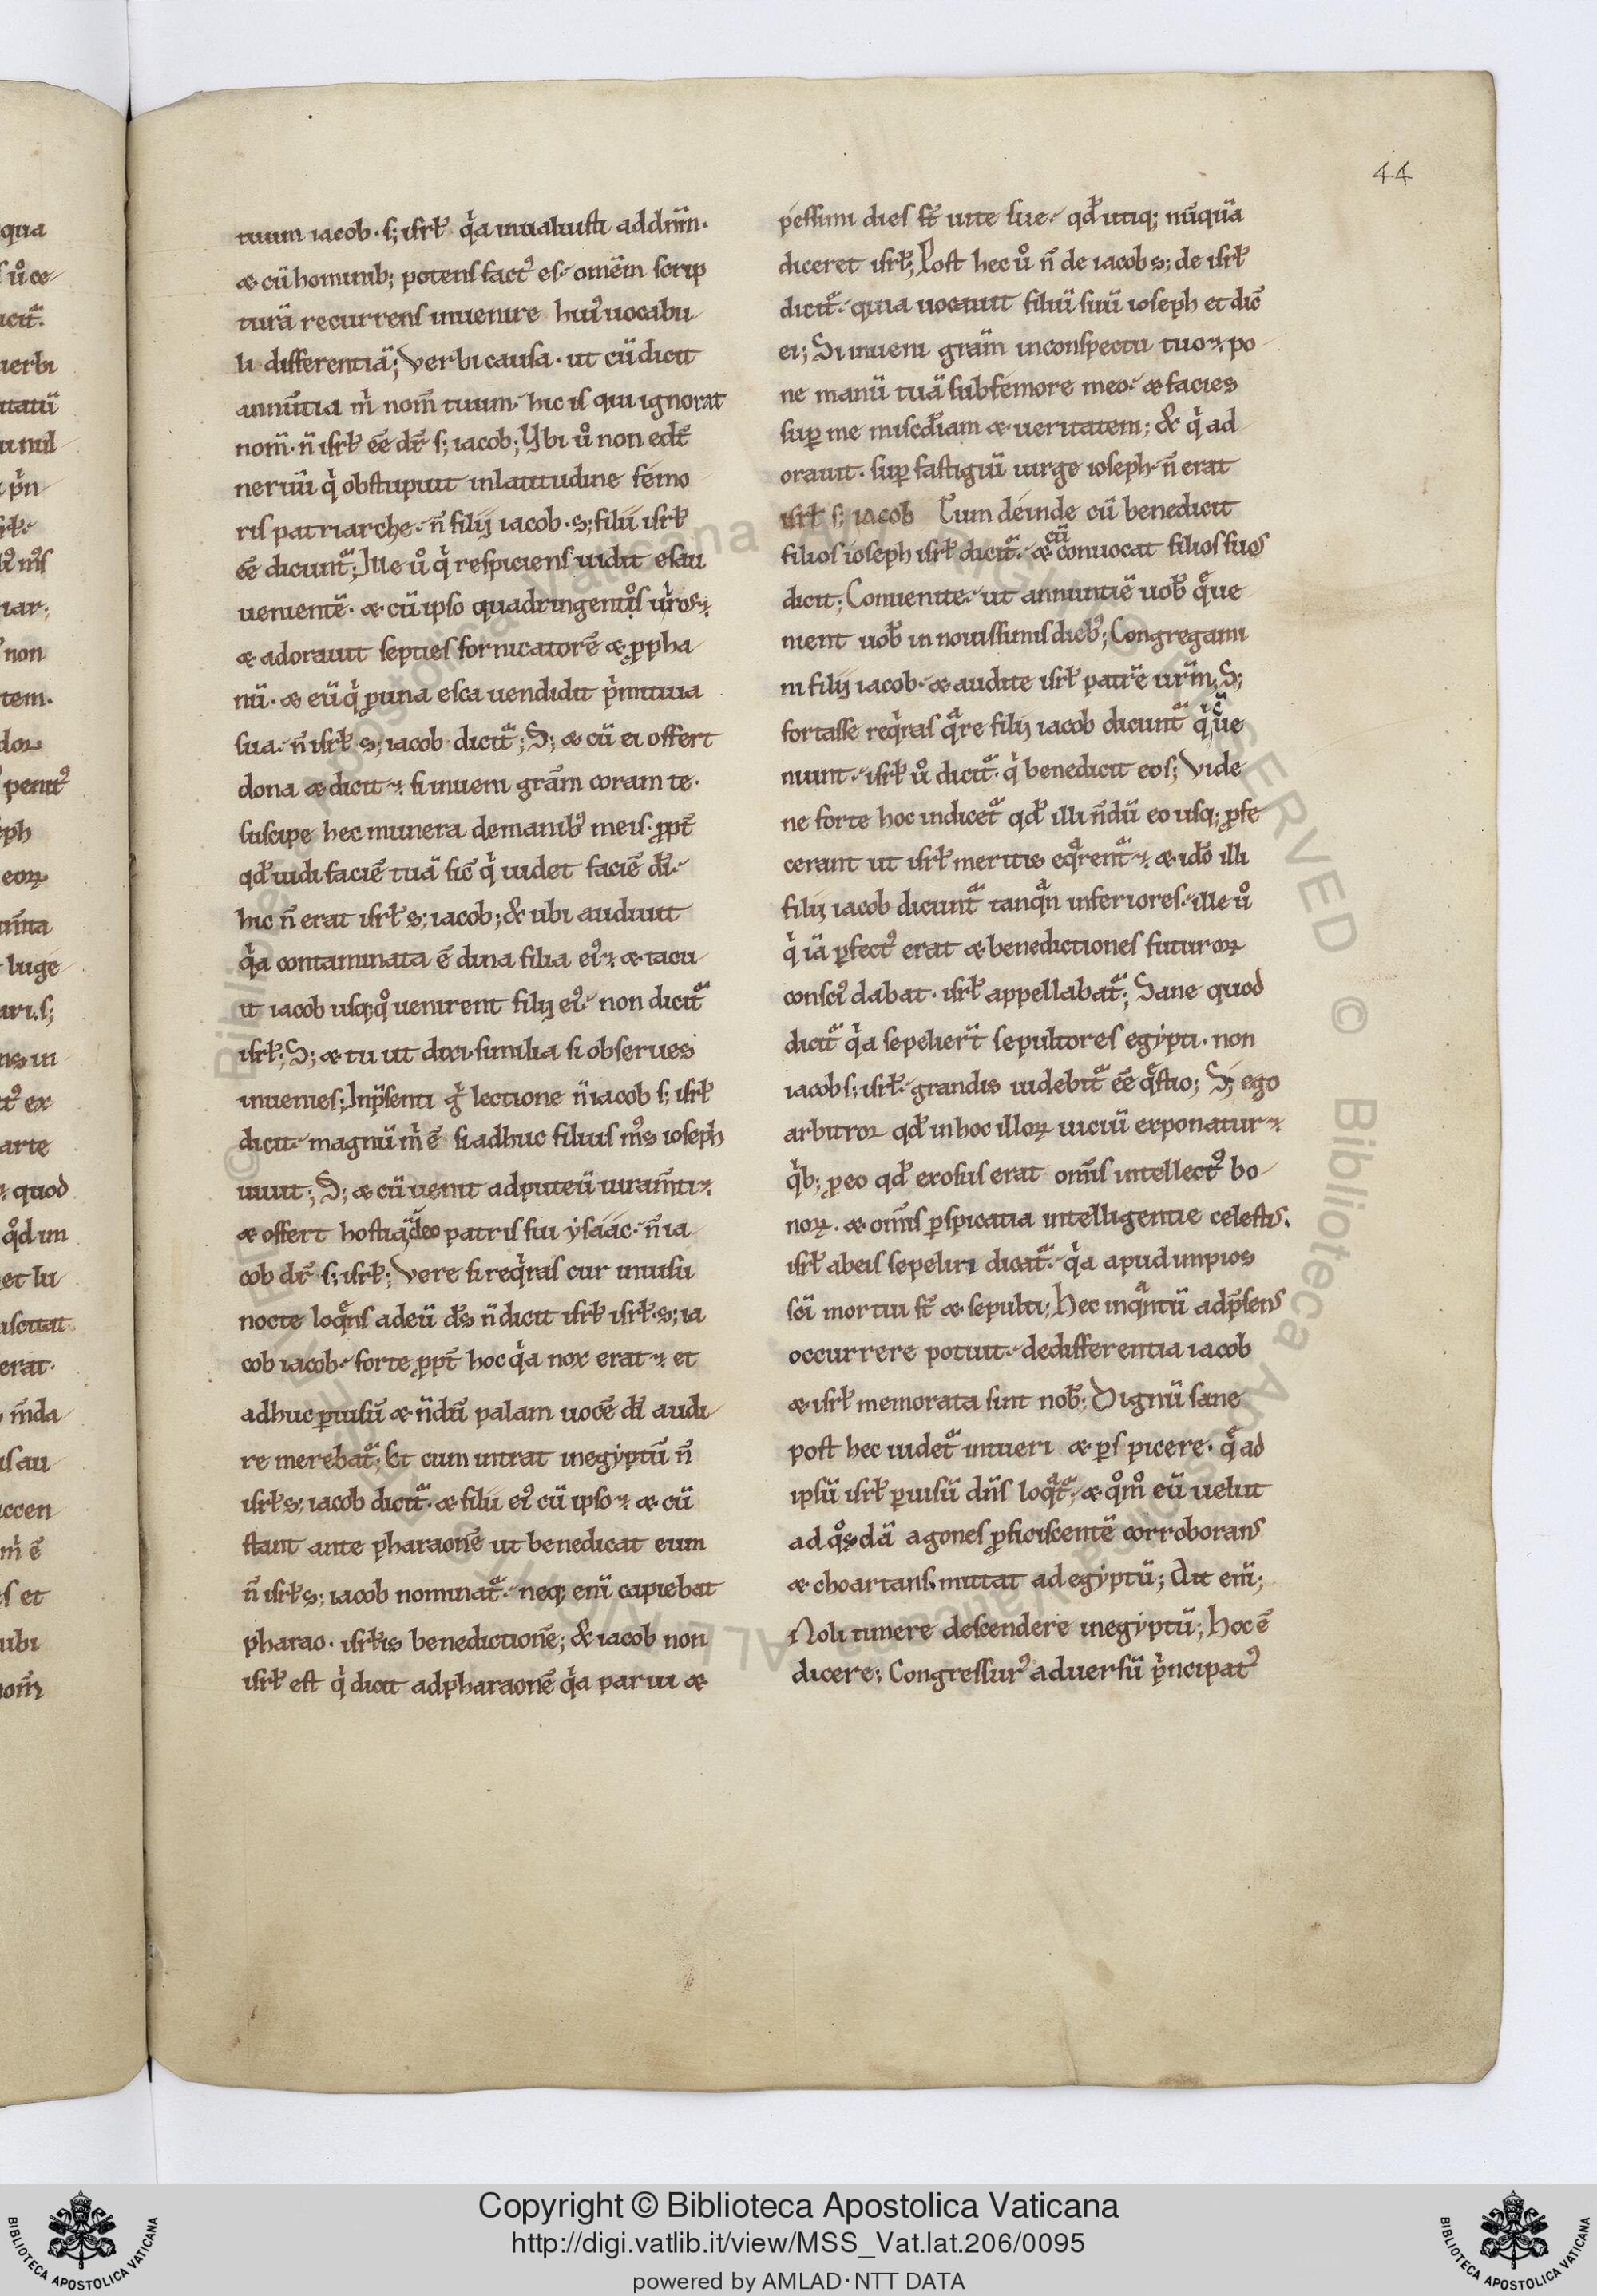 44
tuum iacob. s; isrł q̇a inualuisti addnm̄.
& cū hominib; potens fact᷒ es. omēm scrip
turā recurrens inuenire hui᷒ uocabu
li differentiā; Verbi causa. ut cū dicit
annūtia ṁ nom̄ tuum. hic is qui ignorat
nom̄. n̄ isrł eē dr̄ s; iacob; Ybi ů non edt̄
neruū q̇ obstupuit inlatitudine femo
ris patriarche. n̄ filij iacob. s; filii isrł
eē dicunt᷑; Ille ů q̇ respiciens uidit esau
uenientē. & cū ipso quadringentos uiros.
& adorauit septies fornicatorē & ꝓpha
nū. & eū q̇ ꝑ una esca uendidit ṗmitiua
sua. n̄ isrł s; iacob dicit᷑; S; & cū ei offert
dona & dicit. si inueni grām coram te.
suscipe hec munera demanib᷒ meis. ꝓpt̄
qd̄ uidi faciē tuā sic̄ q̇ uidet faciē dī.
hic n̄ erat isrł s; iacob; & ubi audiuit
q̇a contaminata ē dina filia ei᷒. & tacu
it iacob usq; q̊ uenirent filij ei᷒. non dicit᷑
isrł; S; & tu ut dixi. similia si obserues
inuenies; Inp̄senti g̊ lectione n̄ iacob s; isrł
dicit. magnū ṁ ē si adhuc filius m᷒s ioseph
uiuit; S; & cū uenit adputeū iuram̄ti.
& offert hostiā deo patris sui ysaac. n̄ ia
cob dr̄ s; isrł; Vere si req̇ras cur inuisu
nocte loquens adeū ds̄ n̄ dicit isrł isrł. s; ia
cob iacob. forte ꝓpt̄ hoc q̇a nox erat. et
adhuc ꝑuisū & n̄dū palam uocē dī audi
re merebat᷑; Et cum intrat inegyptū n̄
isrł s; iacob dicit᷑. & filii ei᷒ cū ipso. & cū
stant ante pharaonē ut benedicat eum
n̄ isrł s; iacob nominat᷑. neq; enī capiebat
pharao. isrłis benedictionē; & iacob non
isrł est q̇ dicit adpharaonē q̇a parui &
pessimi dies st̄ uite sue. qd̄ utiq; nūquā
diceret isrł; Post hec ů n̄ de iacob s; de isrł
dicit᷑. quia uocauit filiū suū ioseph et dic̄
ei; Si inueni grām inconspectu tuo. po
ne manū tuā subfemore meo. & facies
suꝑ me misc̄diam & ueritatem; & q̇ ad
orauit. suꝑ fastigiū uirge ioseph. n̄ erat
isrł s; iacob Cum deinde cū benedicit
filios ioseph isrł dicit᷑. & cū conuocat filios suos
dicit; Conuenite. ut annuntiē uob̄ que
nient uob̄ in nouissimis dieb᷒; Congregami
ni filij iacob. & audite isrł patrē ur̄m; S;
fortasse req̇ras qᷓre filij iacob dicunt᷑ q̇ cū ue
niunt. isrł ů dicit᷑. q̇ benedicit eos; Vide
ne forte hoc indicet᷑ qd̄ illi n̄dū eo usq; ꝓfe
cerant ut isrł meritis eqᷓrent᷑. & ido̅ illi
filij iacob dicunt᷑ tanqᷓn inferiores. ille ů
q̇ iā ꝑfect᷒ erat & benedictiones futuroꝝ
consci᷒ dabat. isrł appellabat᷑; Sane quod
dicit᷑ q̇a sepeliert̄ sepultores egypti. non
iacob s; isrł. grandis uidebit᷑ eē q̄stio; S; ego
arbitror qd̄ inhoc illoꝝ uiciū exponatur.
q̇b; ꝓ eo qd̄ exosus erat omīs intellect᷒ bo
noꝝ. & omīs ꝑspicatia intelligentie celestis.
isrł abeis sepeliri dicat᷑. q̇a apud impios
scī mortui st̄ & sepulti; Hec inqᷓntū adp̄sens
occurrere potuit. dedifferentia iacob
& isrł memorata sint nob̄; Dignū sane
post hec uidet᷑ intueri & ꝑspicere. q̄ ad
ipsū isrł ꝑuisū dn̄s loqᷓt᷑. & q̊m̊ eū uelut
ad q̊sdā agones ꝓficiscentē corroborans
& choartans. mittat ad egyptū; Ait enī;
Noli timere descendere inegyptū; Hoc ē
dicere; Congressur᷒ aduersū ṗncipat᷒
Copyright © Biblioteca Apostolica Vaticana
http://digi.vatlib.it/view/MSS_Vat.lat.206/0095
powered by AMLAD·NTT DATA
BIBLIOTECA APOSTOLICA VATICANA
BIBLIOTECA APOSTOLICA VATICANA